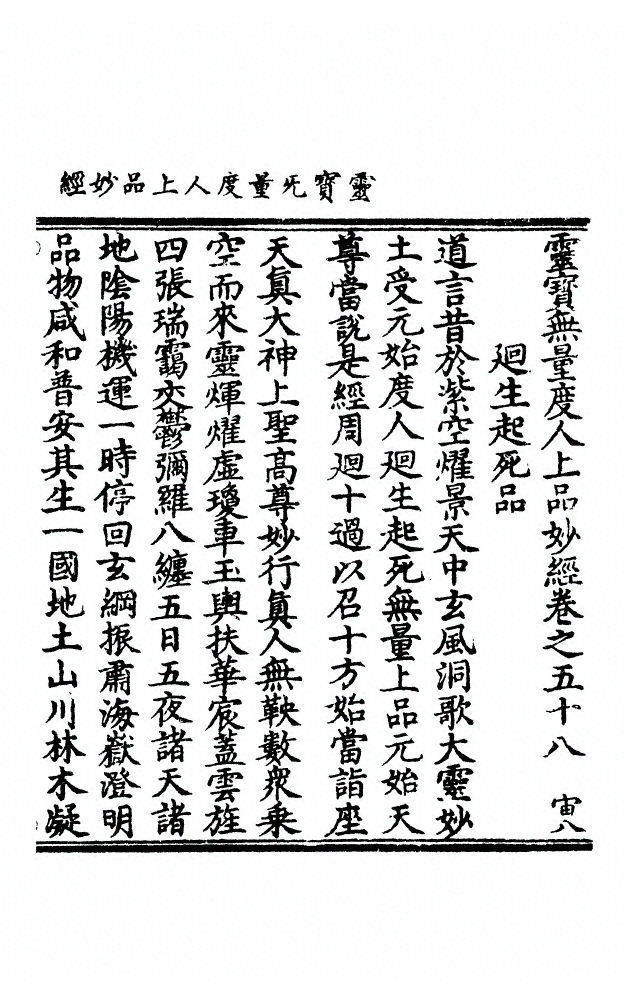 靈寶旡量度人上品妙經
靈寶無量度人上品妙經卷之五十八　宙八
廻生起死品
道言昔於紫空燿景天中玄風洞歌大靈妙
土受元始度人廻生起死無量上品元始天
尊當說是經周廻十過以召十方始當詣座
天眞大神上聖高尊妙行眞人無鞅數衆乗
空而來靈煇燿虛瓊車玉輿扶華宸蓋雲旌
四張瑞靄交鬱彌羅八纏五日五夜諸天諸
地陰陽機運一時停回玄綱振肅海嶽澄明
品物咸和普安其生一國地土山川林木凝